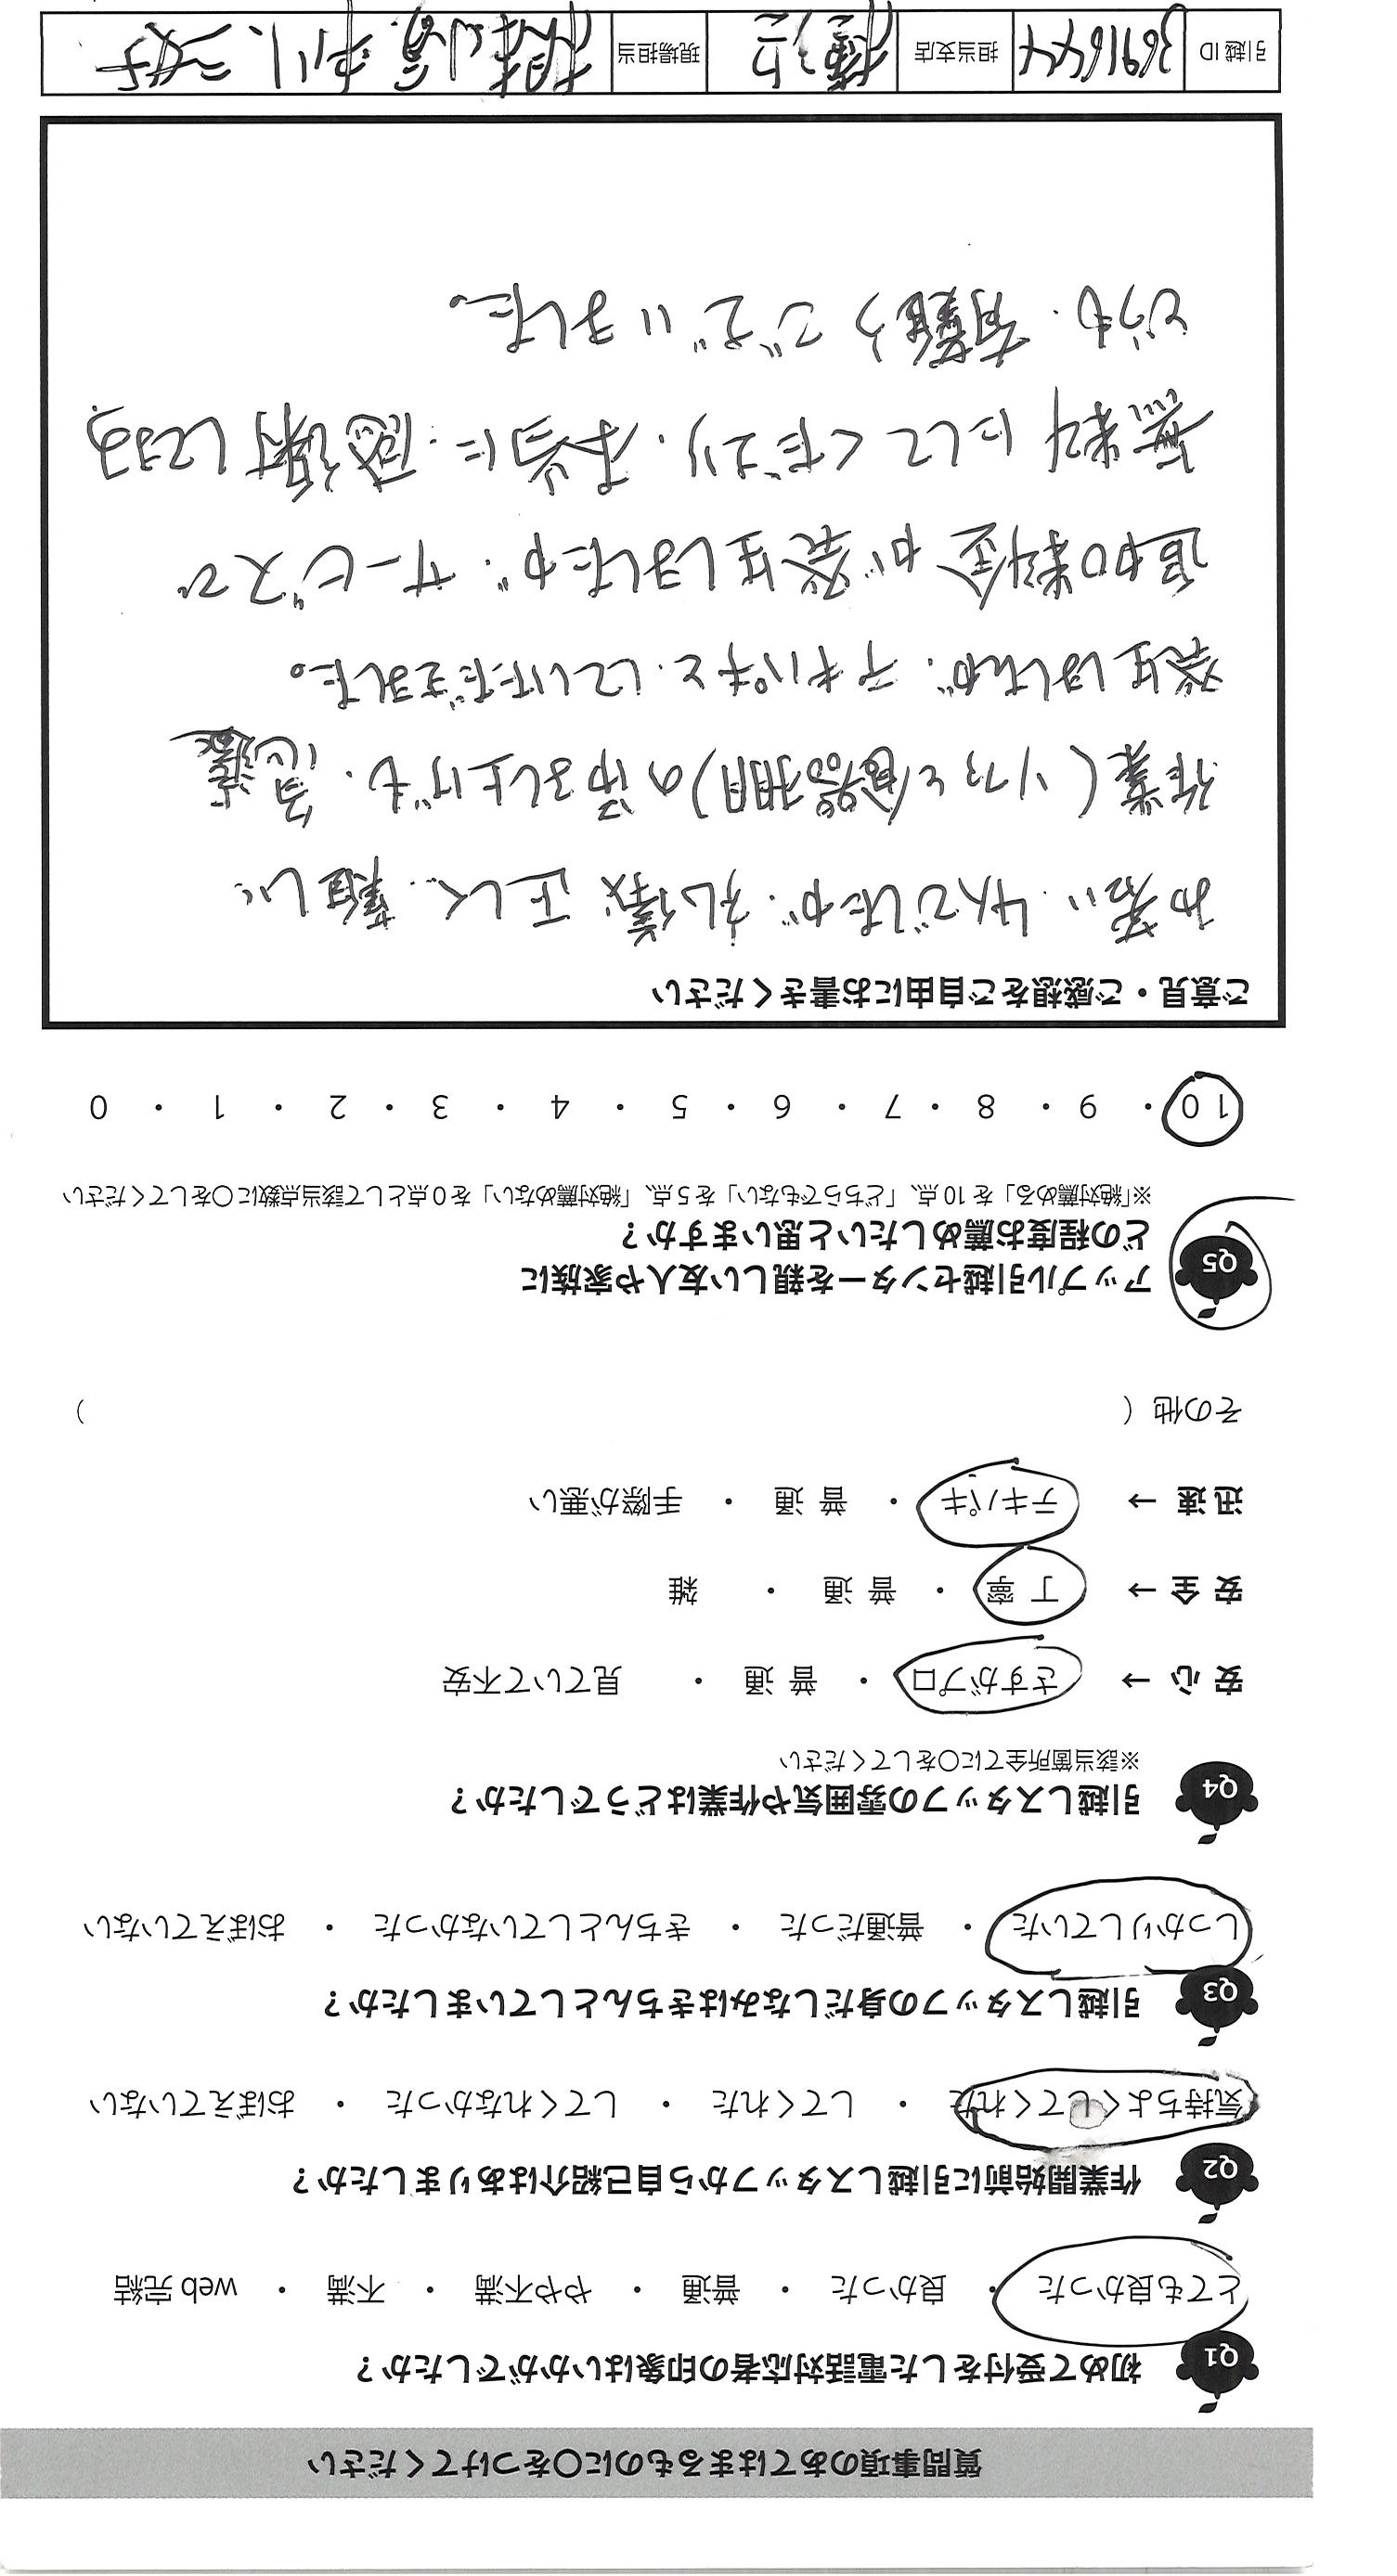 質問事項のあてはまるものに〇をつけてください
Q1 初めて受付をした電話対応者の印象はいかがでしたか？
とても良かった ・ 良かった ・ 普通 ・ やや不満 ・ 不満 ・ web 完結
Q2 作業開始前に引越しスタッフから自己紹介はありましたか？
気持ちよくしてくれた ・ してくれた ・ してくれなかった ・ おぼえていない
Q3 引越しスタッフの身だしなみはきちんとしていましたか？
しっかりしていた ・ 普通だった ・ きちんとしていなかった ・ おぼえていない
Q4 引越しスタッフの雰囲気や作業はどうでしたか？
※該当箇所全てに〇をしてください
安心 → さすがプロ ・ 普通 ・ 見ていて不安
安全 → 丁寧 ・ 普通 ・ 雑
迅速 → テキパキ ・ 普通 ・ 手際が悪い
その他 （ ）
Q5 アップル引越センターを親しい友人や家族に
どの程度お薦めしたいと思いますか？
※「絶対薦める」を 10 点、「どちらでもない」を 5 点、「絶対薦めない」を 0 点として該当点数に〇をしてください
10 ・ 9 ・ 8 ・ 7 ・ 6 ・ 5 ・ 4 ・ 3 ・ 2 ・ 1 ・ 0
ご意見・ご感想をご自由にお書きください
お若い4人でしたが、礼儀正しく、難しい
作業(ソファと食器棚)の吊るし上げも、急遽
発生しましたが、テキパキと、していただきました。
追加料金が発生しましたが、サービスで
無料にしてくださり、本当に感謝してます。
どうも、有難うございました。
引越ID 3691644 担当支店 現場担当